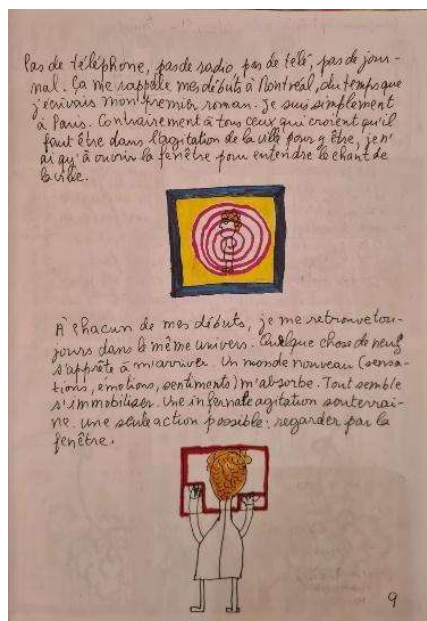 Pas de téléphone, pas de radio, pas de télé, pas de jour-
nal. Ça me rappelle mes débuts à Montréal, du temps que
j'écrivais mon premier roman. Je suis simplement
à Paris. Contrairement à tous ceux qui croient qu'il
faut être dans l'agitation de la ville pour y être, je n'
ai qu'à ouvrir la fenêtre pour entendre le chant de
la ville.
À chacun de mes débuts, je me retrouve tou-
jours dans le même univers. Quelque chose de neuf
s'apprête à m'arriver. Un monde nouveau (sensa-
tions, émotions, sentiments) m'absorbe. Tout semble
s'immobiliser. Une infernale agitation souterrai-
ne. Une seule action possible: regarder par la
fenêtre.
9